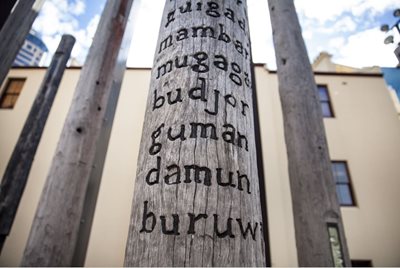 guigad
mamba
mugaga
budjor
guman
damun
buruwi